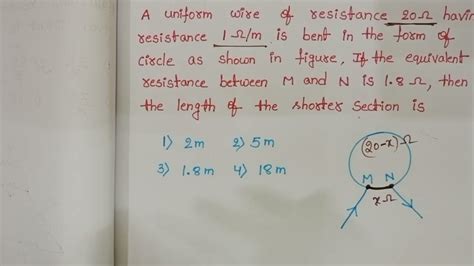 A uniform wire of resistance 20Ω havi
resistance 1Ω/m is bent in the form of
circle as shown in figure, If the equivalent
resistance between M and N is 1.8Ω, then
the length of the shorter section is
1) 2m 2) 5m
3) 1.8m 4) 18m
(20-x)Ω
M N
xΩ